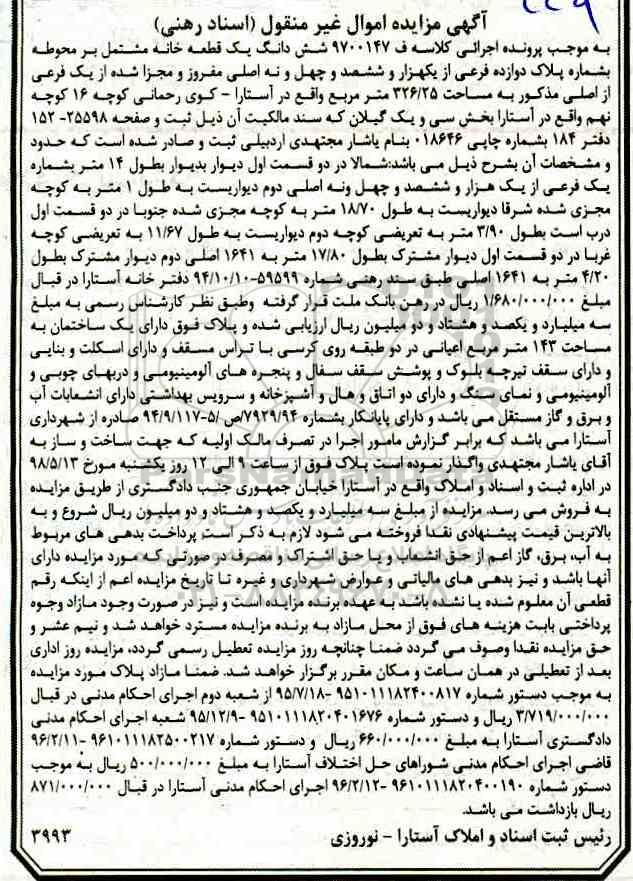 آگهی مزایده اموال غیر منقول (اسناد رهنی)
به موجب پرونده اجرائی کلاسه ف ۹۷۰۰۱۴۷ شش دانگ یک قطعه خانه مشتمل بر محوطه
بشماره پلاک دوازده فرعی از یکهزار و ششصد و چهل و نه اصلی مفروز و مجزا شده از یک فرعی
از اصلی مذکور به مساحت ۳۲۶/۲۵ متر مربع واقع در آستارا - کوی رحمانی کوچه ۱۶ کوچه
نهم واقع در آستارا بخش سی و یک گیلان که سند مالکیت آن ذیل ثبت و صفحه ۲۵۵۹۸- ۱۵۲
دفتر ۱۸۴ بشماره چاپی ۰۱۸۶۴۶ بنام یاشار مجتهدی اردبیلی ثبت و صادر شده است که حدود
و مشخصات آن بشرح ذیل می باشد:شمالا در دو قسمت اول دیوار بدیوار بطول ۱۴ متر بشماره
یک فرعی از یک هزار و ششصد و چهل ونه اصلی دوم دیواریست به طول ۱ متر به کوچه
مجزی شده شرقا دیواریست به طول ۱۸/۷۰ متر به کوچه مجزی شده جنوبا در دو قسمت اول
درب است بطول ۳/۹۰ متر به تعریضی کوچه دوم دیواریست به طول ۱۱/۶۷ به تعریضی کوچه
غربا در دو قسمت اول دیوار مشترک بطول ۱۷/۸۰ متر به ۱۶۴۱ اصلی دوم دیوار مشترک بطول
۴/۲۰ متر به ۱۶۴۱ اصلی طبق سند رهنی شماره ۵۹۵۹۹-۹۴/۱۰/۱۰ دفتر خانه آستارا در قبال
مبلغ ۱/۶۸۰/۰۰۰/۰۰۰ ریال در رهن بانک ملت قرار گرفته وطبق نظر کارشناس رسمی به مبلغ
سه میلیارد و یکصد و هشتاد و دو میلیون ریال ارزیابی شده و پلاک فوق دارای یک ساختمان به
مساحت ۱۴۳ متر مربع اعیانی در دو طبقه روی کرسی با تراس مسقف و دارای اسکلت و بنایی
و دارای سقف تیرچه بلوک و پوشش سقف سفال و پنجره های آلومینیومی و دربهای چوبی و
آلومینیومی و نمای سنگ و دارای دو اتاق و هال و آشپزخانه و سرویس بهداشتی دارای انشعابات آب
و برق و گاز مستقل می باشد و دارای پایانکار بشماره ۷۹۲۹/۹۴/ص /۵-۹۴/۹/۱۱۷ صادره از شهرداری
آستارا می باشد که برابر گزارش مامور اجرا در تصرف مالک اولیه که جهت ساخت و ساز به
آقای یاشار مجتهدی واگذار نموده است پلاک فوق از ساعت ۹ الی ۱۲ روز یکشنبه مورخ ۹۸/۵/۱۳
در اداره ثبت و اسناد و املاک واقع در آستارا خیابان جمهوری جنب دادگستری از طریق مزایده
به فروش می رسد. مزایده از مبلغ سه میلیارد و یکصد و هشتاد و دو میلیون ریال شروع و به
بالاترین قیمت پیشنهادی نقدا فروخته می شود لازم به ذکر است پرداخت بدهی های مربوط
به آب، برق، گاز اعم از حق انشعاب و یا حق اشتراک و مصرف در صورتی که مورد مزایده دارای
آنها باشد و نیز بدهی های مالیاتی و عوارض شهرداری و غیره تا تاریخ مزایده اعم از اینکه رقم
قطعی آن معلوم شده یا نشده باشد به عهده برنده مزایده است و نیز در صورت وجود مازاد وجوه
پرداختی بابت هزینه های فوق از محل مازاد به برنده مزایده مسترد خواهد شد و نیم عشر و
حق مزایده نقدا وصوف می گردد ضمنا چنانچه روز مزایده تعطیل رسمی گردد، مزایده روز اداری
بعد از تعطیلی در همان ساعت و مکان مقرر برگزار خواهد شد. ضمنا مازاد پلاک مورد مزایده
به موجب دستور شماره ۹۵۱۰۱۱۱۸۲۴۰۰۸۱۷ -۹۵/۷/۱۸ از شعبه دوم اجرای احکام مدنی در قبال
۳/۷۱۹/۰۰۰/۰۰۰ ریال و دستور شماره ۹۵۱۰۱۱۱۸۲۰۴۰۱۶۷۶ -۹۵/۱۲/۹ شعبه اجرای احکام مدنی
دادگستری آستارا به مبلغ ۶۶۰/۰۰۰/۰۰۰ ریال و دستور شماره ۹۶۱۰۱۱۱۸۲۵۰۰۲۱۷ -۹۶/۲/۱۱
قاضی اجرای احکام مدنی شوراهای حل اختلاف آستارا به مبلغ ۵۰۰/۰۰۰/۰۰۰ ریال به موجب
دستور شماره ۹۶۱۰۱۱۱۸۲۰۴۰۰۱۹۰ -۹۶/۲/۱۲ اجرای احکام مدنی آستارا در قبال ۸۷۱/۰۰۰/۰۰۰
ریال بازداشت می باشد.
رئیس ثبت اسناد و املاک آستارا - نوروزی ۳۹۹۳